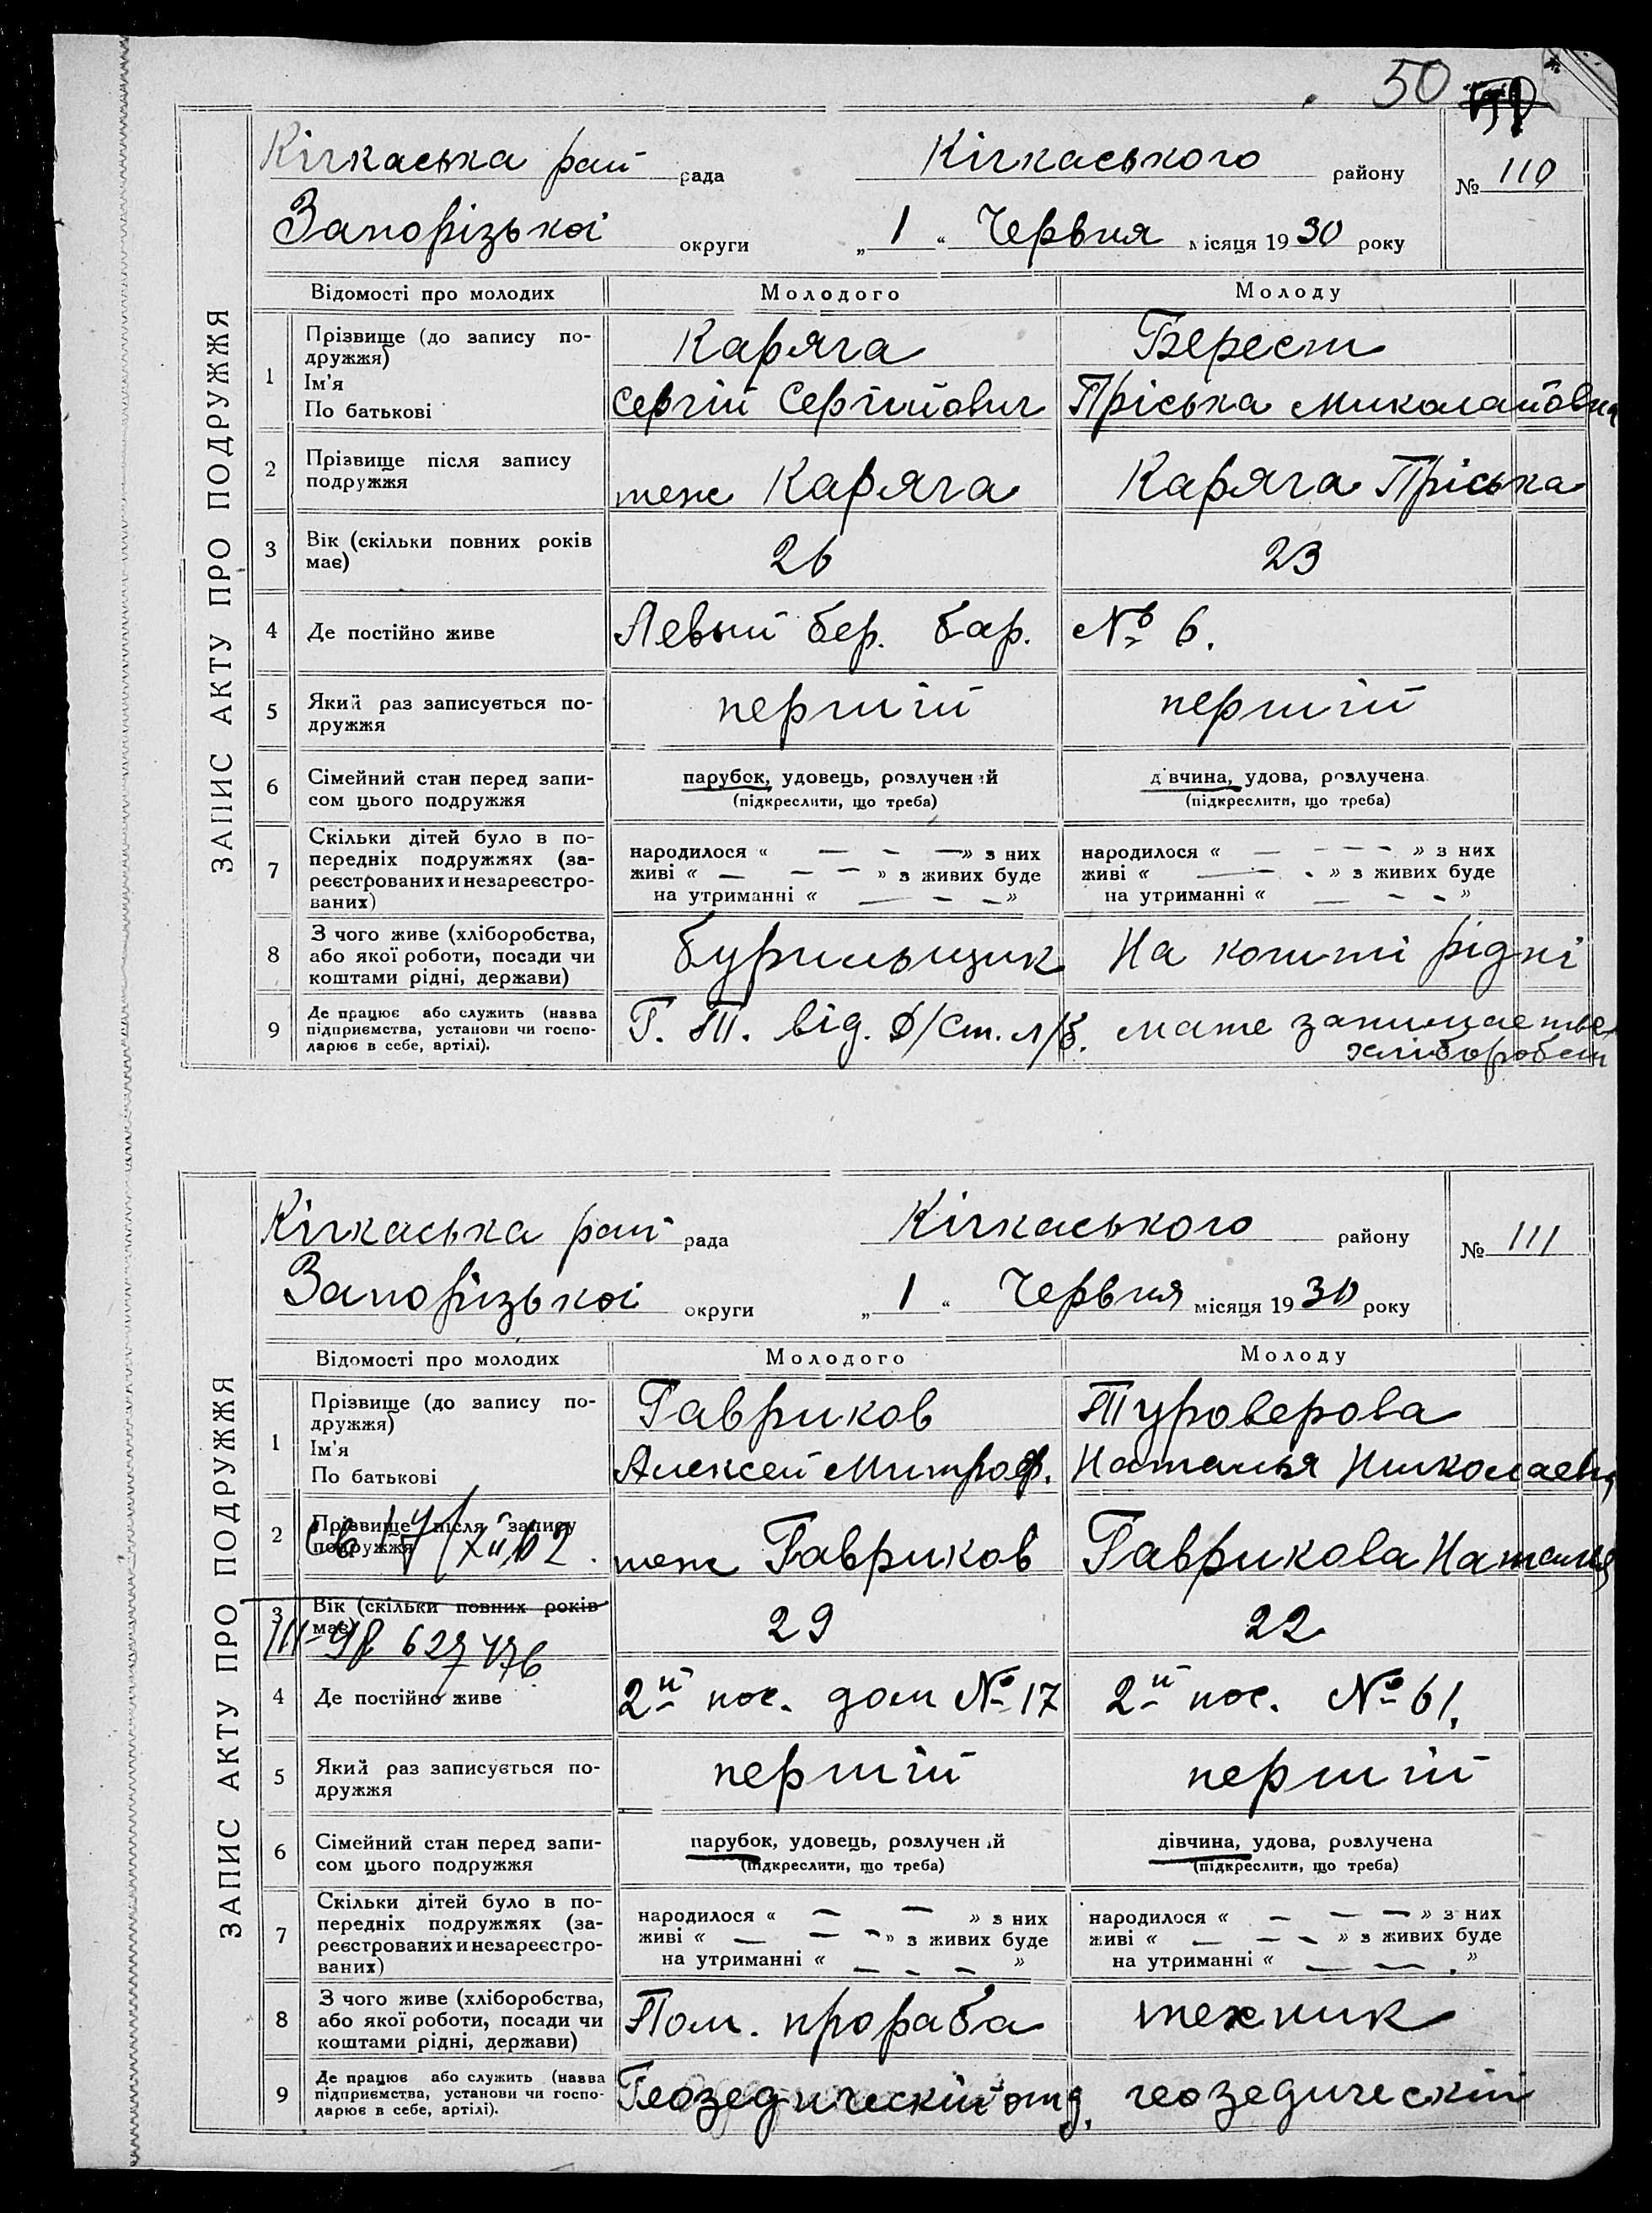 50
ЗАПИС АКТУ ПРО ПОДРУЖЖЯ
Кічкаська рай рада Кічкаського району № 110
Запорізької округи „ 1 “ Червня місяця 1930 року
Відомості про молодих Молодого Молоду
1 Прізвище (до запису по-
дружжя) Каряга Берест
Ім'я
По батькові Сергій Сергійович Пріська Миколайовна
2 Прізвище після запису
подружжя теж Каряга Каряга Пріська
3 Вік (скільки повних років
має) 26 23
4 Де постійно живе Левый бер. бар. № 6.
5 Який раз записується по-
дружжя першій першій
6 Сімейний стан перед запи-
сом цього подружжя парубок, удовець, розлучений дівчина, удова, розлучена
(підкреслити, що треба) (підкреслити, що треба)
7 Скільки дітей було в по-
передніх подружжях (за-
реєстрованих и незареєстро-
ваних)
народилося « — - — » з них народилося « — - - - » з них
живі « — — - » з живих буде живі « — - » з живих буде
на утриманні « — - - » на утриманні « — - - »
8 З чого живе (хліборобства,
або якої роботи, посади чи
коштами рідні, держави) бурильщик На кошті рідні
9 Де працює або служить (назва
підприємства, установи чи госпо-
дарює в себе, артілі). Г. Т. від. Д/Ст. л/б.
хлібороб
ЗАПИС АКТУ ПРО ПОДРУЖЖЯ
Кічкаська рай рада Кічкаського району № 111
Запорізької округи „ 1 “ Червня місяця 1930 року
Відомості про молодих Молодого Молоду
1 Прізвище (до запису по-
дружжя) Гавриков Туроверова
Ім'я
По батькові Алексей Митроф. Наталья Николаевна
2 Прізвище після запису
подружжя теж Гавриков Гаврикова Наталия
3 Вік (скільки повних років
має) 29 22
627476
4 Де постійно живе 2й пос. дом № 17 2й пос. № 61.
5 Який раз записується по-
дружжя першій першій
6 Сімейний стан перед запи-
сом цього подружжя парубок, удовець, розлучений дівчина, удова, розлучена
(підкреслити, що треба) (підкреслити, що треба)
7 Скільки дітей було в по-
передніх подружжях (за-
реєстрованих и незареєстро-
ваних)
народилося « — — » з них народилося « - — — » з них
живі « — — - » з живих буде живі « — - - » з живих буде
на утриманні « — - - » на утриманні « — — »
8 З чого живе (хліборобства,
або якої роботи, посади чи
коштами рідні, держави) Пом. прораба техник
9 Де працює або служить (назва
підприємства, установи чи госпо-
дарює в себе, артілі). Геозедическій отд. геозедическій